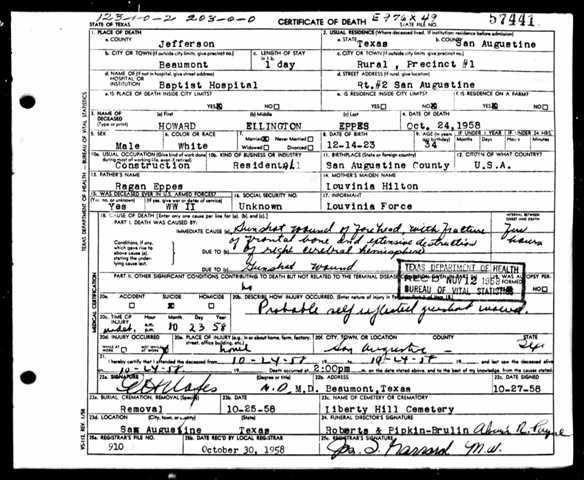 123-10-2 203-0-0 CERTIFICATE OF DEATH E976X49 57441
STATE OF TEXAS STATE FILE NO.
1. PLACE OF DEATH 2. USUAL RESIDENCE (Where deceased lived. If institution: residence before admission)
a. COUNTY Jefferson a. STATE Texas b. COUNTY San Augustine
b. CITY OR TOWN (If outside city limits, give precinct no.) Beaumont c. LENGTH OF STAY 1 day c. CITY OR TOWN (If outside city limits, give precinct no.) Rural, Precinct #1
d. NAME OF (If not in hospital, give street address) HOSPITAL OR INSTITUTION Baptist Hospital d. STREET ADDRESS (If rural, give location) Rt.#2 San Augustine
e. IS PLACE OF DEATH INSIDE CITY LIMITS? YES NO e. IS RESIDENCE INSIDE CITY LIMITS? YES NO f. IS RESIDENCE ON A FARM? YES NO
3. NAME OF DECEASED (Type or print) (a) First HOWARD (b) Middle ELLINGTON (c) Last EPPES 4. DATE OF DEATH Oct. 24, 1958
5. SEX Male 6. COLOR OR RACE White 7. Married Never Married Widowed Divorced 8. DATE OF BIRTH 12-14-23 9. AGE 34 IF UNDER 1 YEAR IF UNDER 24 HRS.
10a. USUAL OCCUPATION (Give kind of work done during most of working life, even if retired) Construction 10b. KIND OF BUSINESS OR INDUSTRY 11. BIRTHPLACE (State or foreign country) San Augustine County 12. CITIZEN OF WHAT COUNTRY? U.S.A.
13. FATHER'S NAME Ragan Eppes 14. MOTHER'S MAIDEN NAME Louvinia Hilton
15. WAS DECEASED EVER IN U.S. ARMED FORCES? Yes WW II 16. SOCIAL SECURITY NO. Unknown 17. INFORMANT Louvinia Force
18. CAUSE OF DEATH (Enter only one cause per line for (a), (b), and (c).) INTERVAL BETWEEN ONSET AND DEATH
PART I. DEATH WAS CAUSED BY:
IMMEDIATE CAUSE (a) Gunshot wound of forehead, with fracture
Conditions, if any, which gave rise to above cause (a), stating the underlying cause last. DUE TO (b) of frontal bone and extensive destruction hours
of right cerebral hemisphere
DUE TO (c) Gunshot wound
PART II. OTHER SIGNIFICANT CONDITIONS CONTRIBUTING TO DEATH BUT NOT RELATED TO THE TERMINAL DISEASE CONDITION GIVEN IN PART I(a)
no
TEXAS DEPARTMENT OF HEALTH
REC'D NOV 12 1958
BUREAU OF VITAL STATISTICS
20a. ACCIDENT SUICIDE HOMICIDE 20b. DESCRIBE HOW INJURY OCCURRED.
Probable self inflicted gunshot wound.
20c. TIME OF INJURY Hour Month Day Year a.m. p.m. 10 23 58
20d. INJURY OCCURRED 20e. PLACE OF INJURY (e.g., in or about home, farm, factory, street, office building, etc.) home 20f. CITY, TOWN, OR LOCATION San Augustine COUNTY STATE
21. I hereby certify that I attended the deceased from 10-24-58 to 10-24-58 and last saw the deceased alive
on 10-24-58 Death occurred at 2:00pm m. on the date stated above, and to the best of my knowledge, from the causes stated.
22a. SIGNATURE (Degree or title) M.D. 22b. ADDRESS M.D. Beaumont, Texas 22c. DATE SIGNED 10-27-58
23a. BURIAL, CREMATION, REMOVAL (Specify) Removal 23b. DATE 10-25-58 23c. NAME OF CEMETERY OR CREMATORY Liberty Hill Cemetery
23d. LOCATION (City, town, or county) (State) San Augustine Texas 24. FUNERAL DIRECTOR'S SIGNATURE Roberts & Pipkin-Brulin
25a. REGISTRAR'S FILE NO. 910 25b. DATE REC'D BY LOCAL REGISTRAR October 30, 1958 25c. REGISTRAR'S SIGNATURE
TEXAS DEPARTMENT OF HEALTH - BUREAU OF VITAL STATISTICS
MEDICAL CERTIFICATION